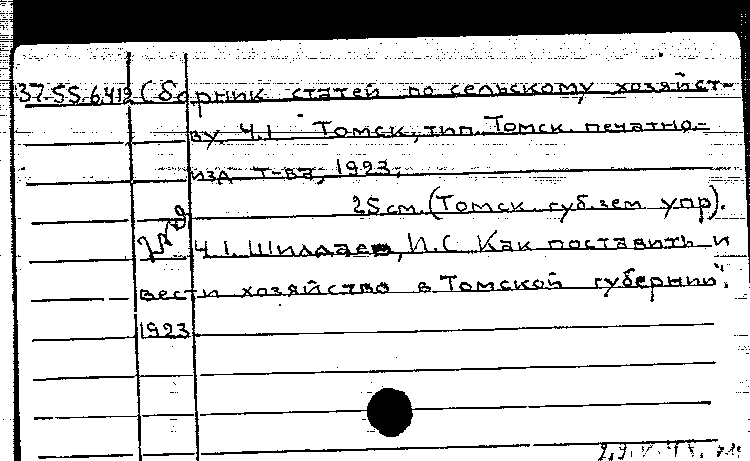 37.55.6.419 Сборник статей по сельскому хозяйст-
ву. Ч.1 Томск, тип. Томск. печатно-
изд. т-ва, 1923,
25 см. (Томск. губ. зем упр).
Ч.1. И.С. Как поставить и
вести хозяйство в Томской губернии".
1923